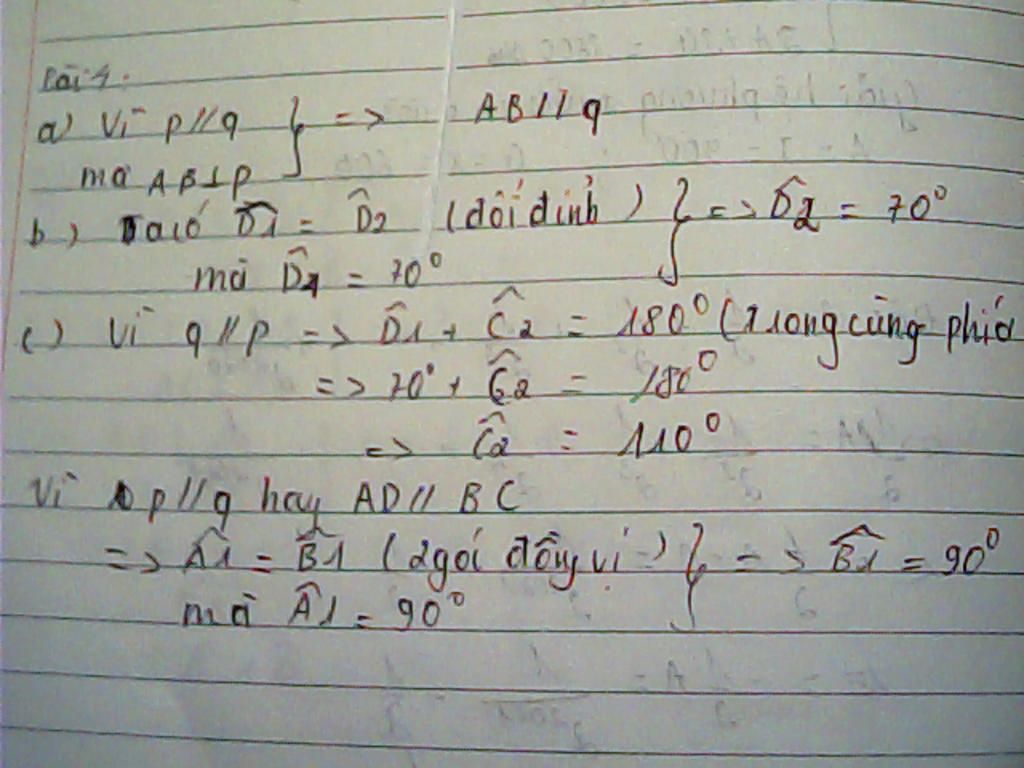 Bài 4:
a) Vì p//q } => AB//q
mà AB⊥p
b) Ta có D̂1 = D̂2 (đối đỉnh) } => D̂2 = 70°
mà D̂1 = 70°
c) Vì q//p => D̂1 + Ĉ2 = 180° (trong cùng phía
=> 70° + Ĉ2 = 180°
=> Ĉ2 = 110°
Vì p//q hay AD//BC
=> Â1 = B̂1 (2 gói đồng vị) } => B̂1 = 90°
mà Â1 = 90°